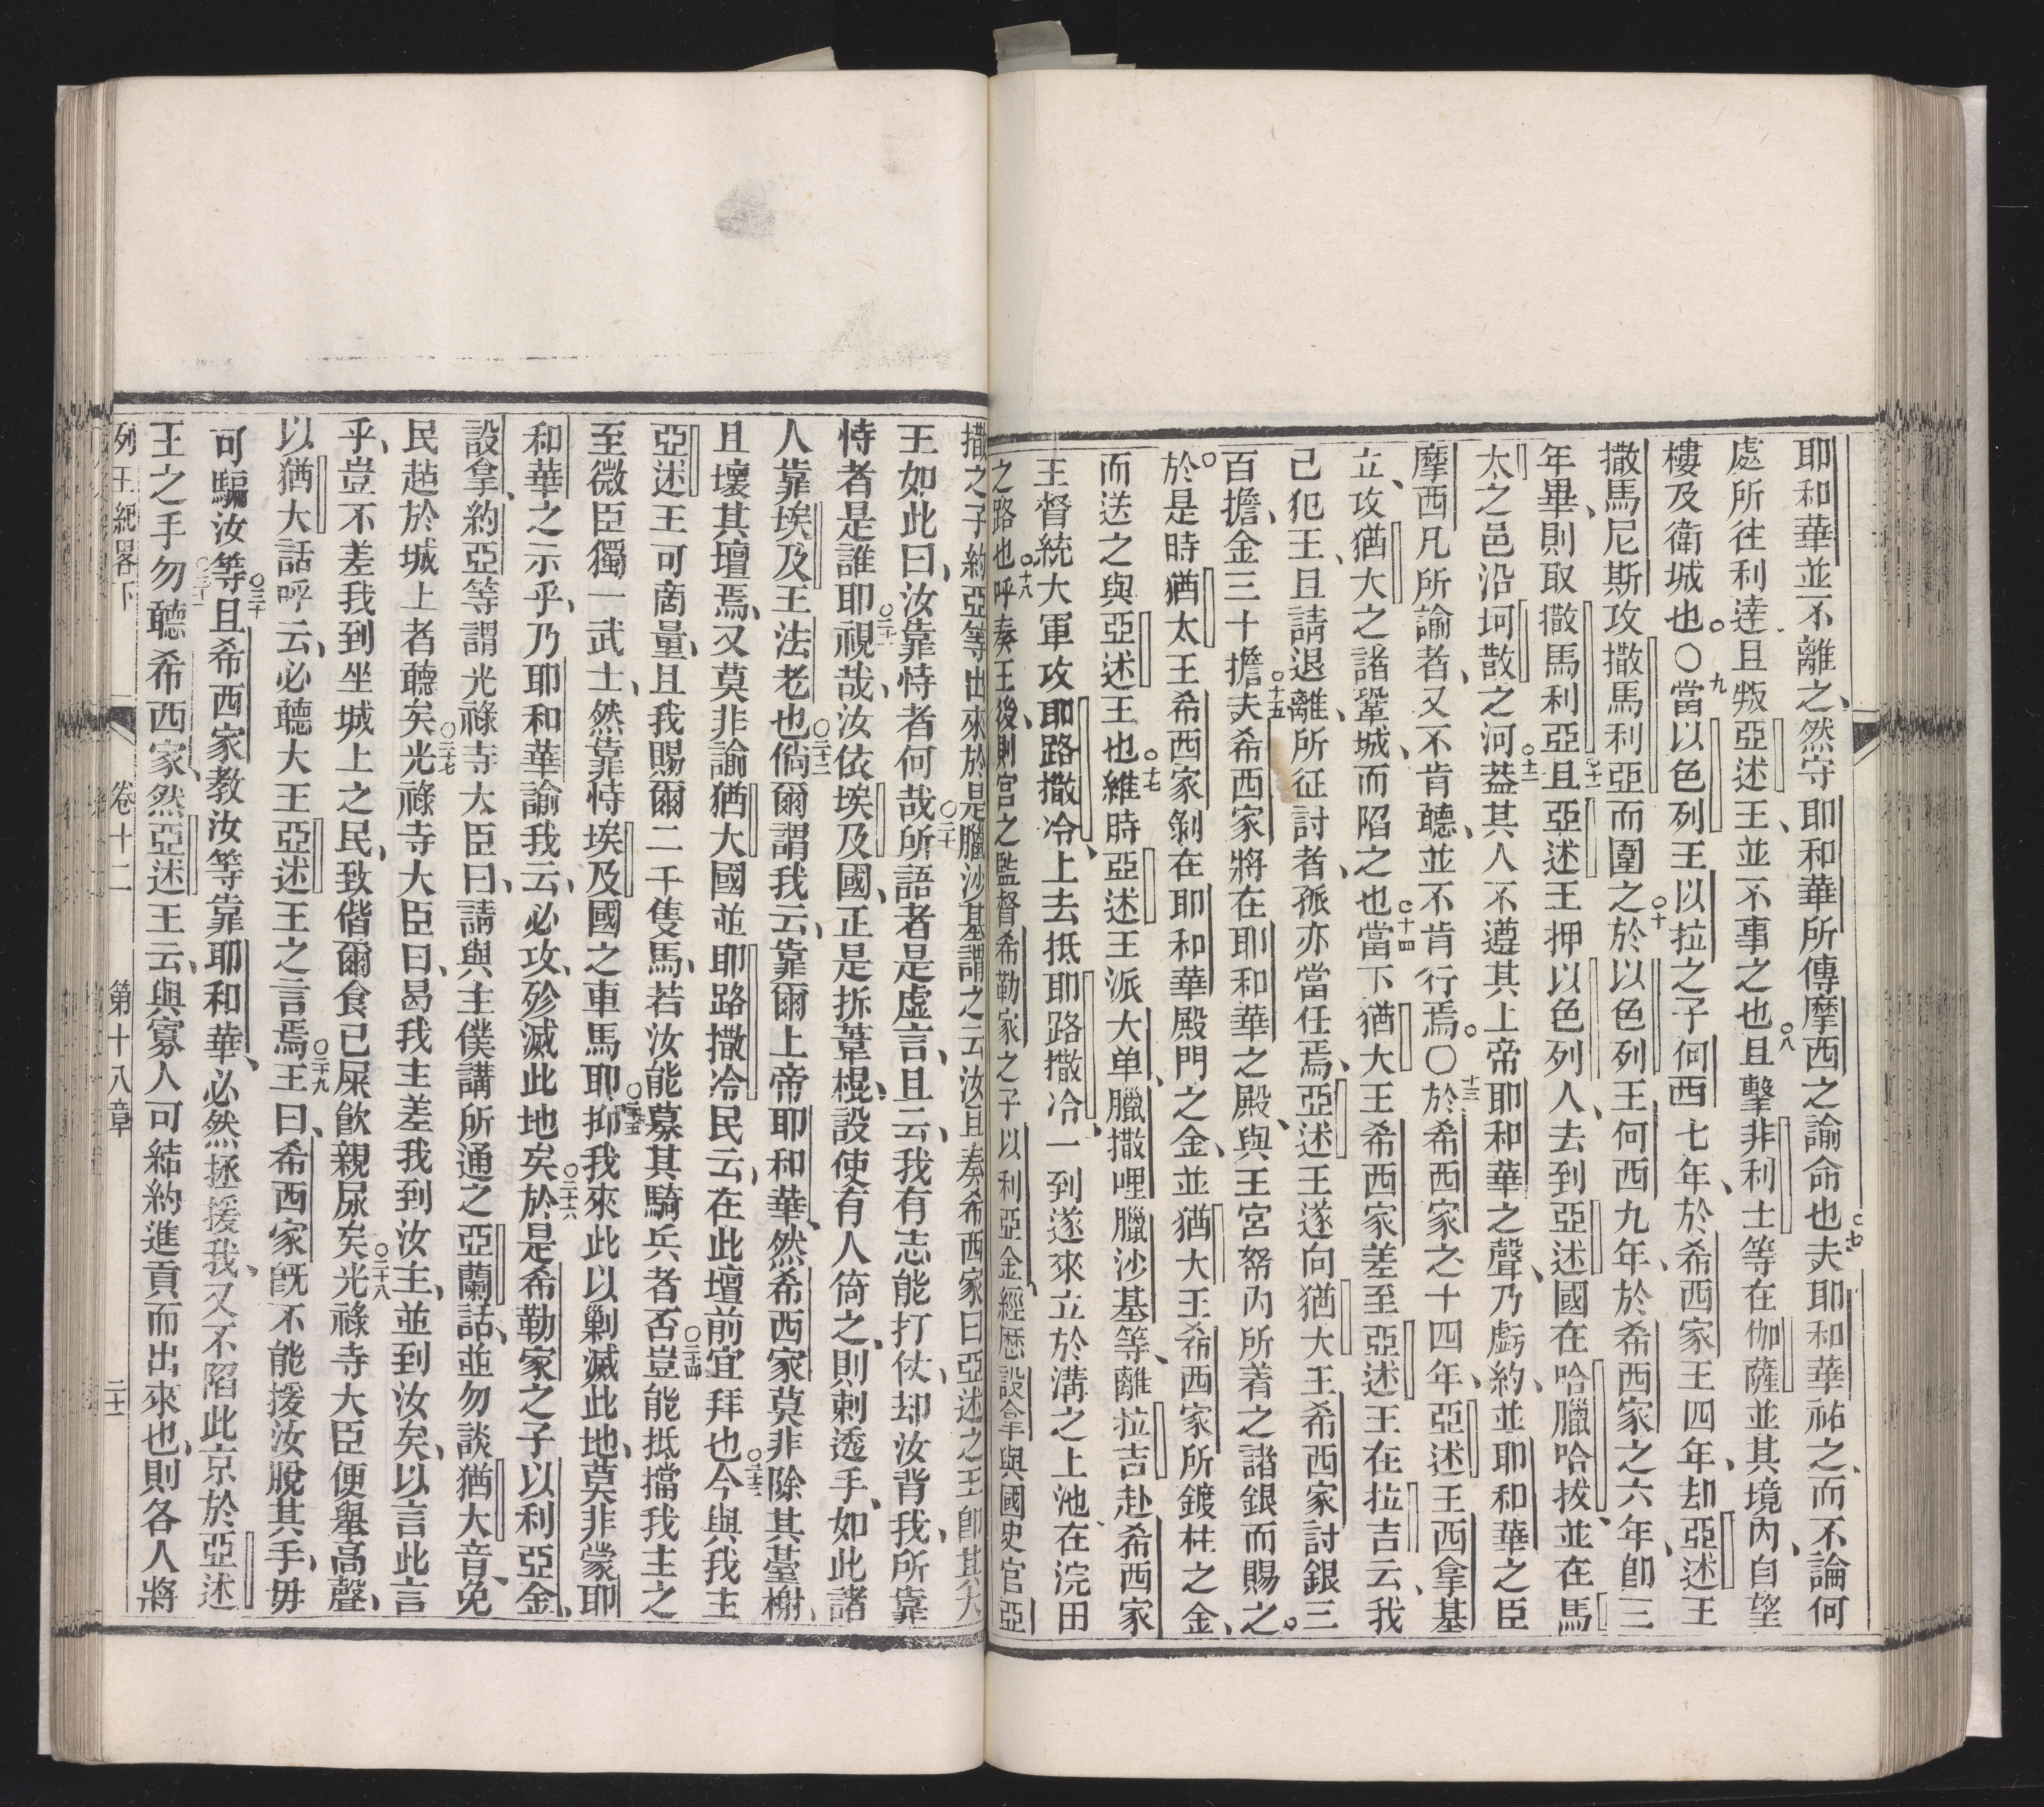 耶和華並不離之、然守耶和華所傳摩西之諭命也○七夫耶和華祐之、而不論何
處所往利達且叛亞述王、並不事之也○八且擊非利士等在伽薩並其境內、自望
樓及衛城也。○九當以色列王以拉之子何西七年、於希西家王四年、却亞述王
撒馬尼斯攻撒馬利亞而圍之○十於以色列王何西九年、於希西家之六年、卽三
年畢、則取撒馬利亞○十一且亞述王押以色列人、去到亞述國在哈臘哈拔、並在馬
太之邑沿坷散之河○十二葢其人不遵其上帝耶和華之聲、乃虧約、並耶和華之臣
摩西凡所諭者、又不肯聽、並不肯行焉。○十三於希西家之十四年、亞述王西拿基
立、攻猶大之諸鞏城、而陷之也○十四當下猶大王希西家差至亞述王在拉吉云、我
已犯王、且請退離、所征討者、孤亦當任焉、亞述王遂向猶大王希西家討銀三
百擔、金三十擔○十五夫希西家將在耶和華之殿、與王宮帑內所着之諸銀而賜之。
○於是時猶太王希西家剝在耶和華殿門之金、並猶大王希西家所鍍柱之金、
而送之與亞述王也○十七維時亞述王派大单、臘撒哩臘沙基等、離拉吉赴希西家
王督統大軍攻耶路撒冷、上去抵耶路撒冷、一到遂來立於溝之上池在浣田
之路也○十八呼奏王後、則宮之監督希勒家之子以利亞金、經歷設拿與國史官亞
撒之子約亞等出來於是臘沙基謂之云汝且奏希西家曰亞述之王卽其大
王如此曰、汝靠恃者何哉○二十所語者是虛言、且云、我有志能打仗、却汝背我、所靠
恃者是誰耶○二十一視哉、汝依埃及國、正是拆葦棍、設使有人倚之、則刺透手、如此諸
人靠埃及王法老也○二十二倘爾謂我云、靠爾上帝耶和華、然希西家莫非除其臺榭、
且壞其壇焉、又莫非諭猶大國並耶路撒冷民云、在此壇前宜拜也○二十三今與我主
亞述王可啇量、且我賜爾二千隻馬、若汝能募其騎兵者否○二十四豈能抵擋我主之
至微臣獨一武士、然靠恃埃及國之車馬耶○二十五抑我來此以剿滅此地、莫非蒙耶
和華之示乎、乃耶和華諭我云、必攻、殄滅此地矣○二十六於是希勒家之子以利亞金、
設拿、約亞等謂光祿寺大臣曰、請與主僕講所通之亞蘭話、並勿談猶大音、免
民趁於城上者聽矣○二十七光祿寺大臣曰、曷我主差我到汝主、並到汝矣、以言此言
乎、豈不差我到坐城上之民、致偕爾食己屎飮親尿矣○二十八光祿寺大臣便舉高聲、
以猶大話呼云、必聽大王亞述王之言焉○二十九王曰、希西家旣不能援汝脫其手、毋
可騙汝等○三十且希西家教汝等靠耶和華、必然拯援我、又不陷此京於亞述
王之手○三十一勿聽希西家、然亞述王云、與寡人可結約進貢而出來也、則各人將
列王紀畧下 卷十二 第十八章 二十